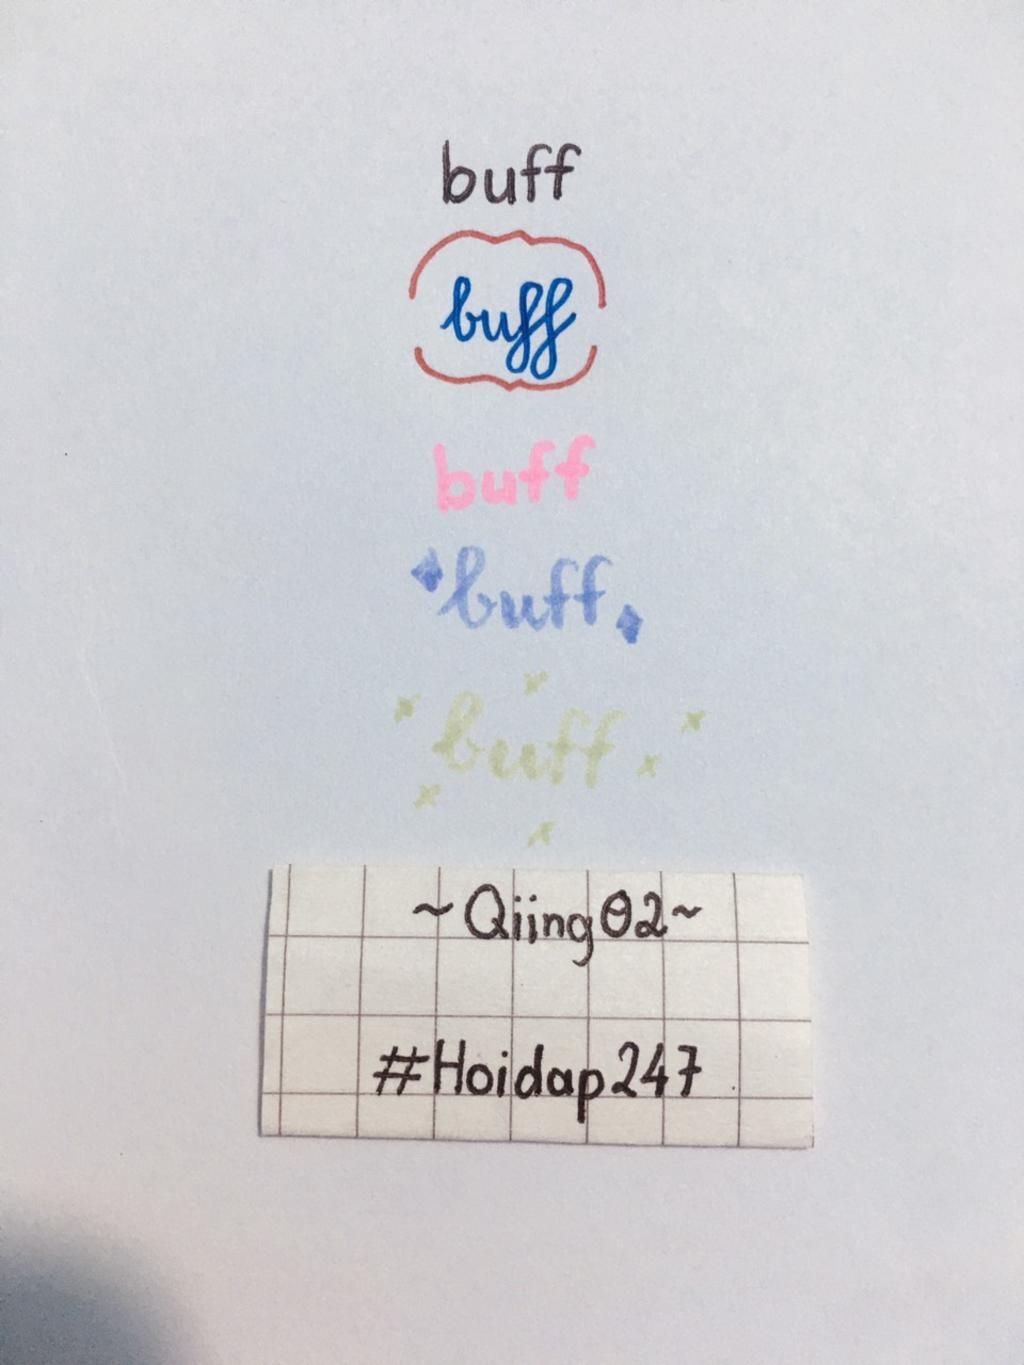 buff
buff
buff
buff
buff
~Qiing02~
#Hoidap247